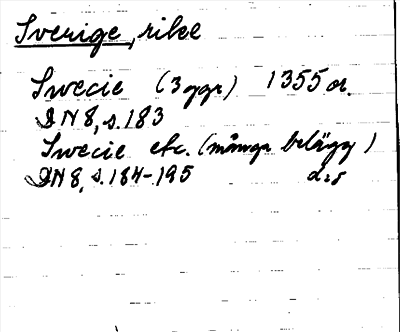 Sverige, rike
Swecie (3 ggr) 1355 or.
DN 8, s.183
Swecie etc. (många belägg)
DN 8, s.184-195 d:o